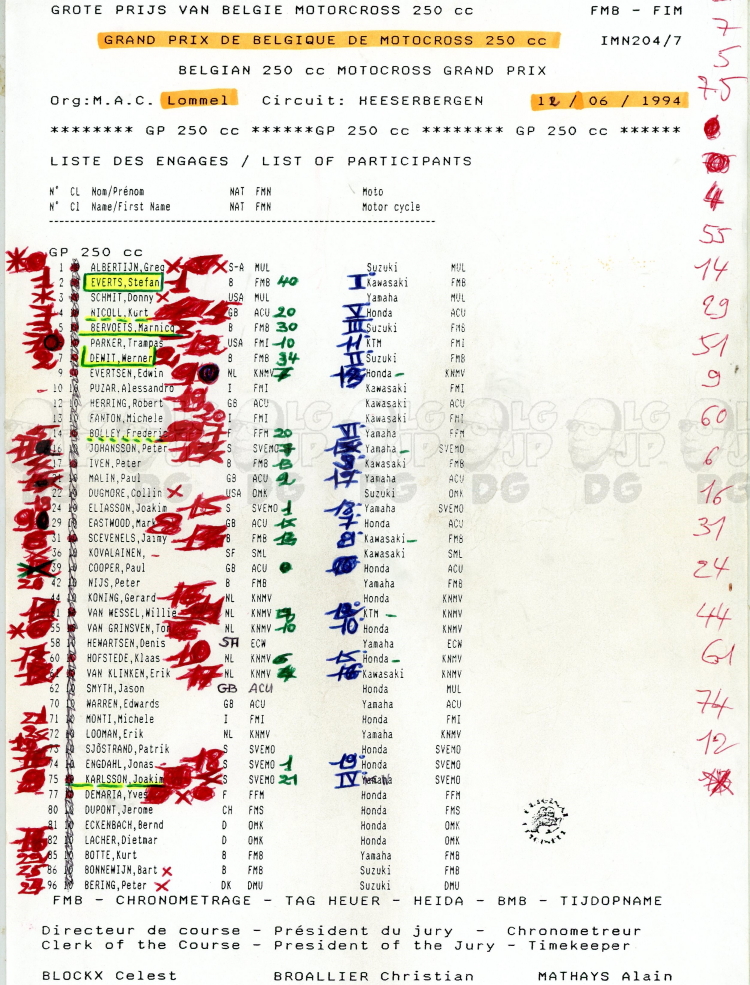 GROTE PRIJS VAN BELGIE MOTORCROSS 250 cc FMB - FIM
GRAND PRIX DE BELGIQUE DE MOTOCROSS 250 cc IMN204/7
BELGIAN 250 cc MOTOCROSS GRAND PRIX
Org:M.A.C. Lommel Circuit: HEESERBERGEN 12 / 06 / 1994
******** GP 250 cc ******GP 250 cc ******** GP 250 cc ******
LISTE DES ENGAGES / LIST OF PARTICIPANTS
N° CL Nom/Prénom NAT FMN Moto
N° Cl Name/First Name NAT FMN Motor cycle
GP 250 cc
1 ALBERTIJN,Greg S-A MUL Suzuki MUL
2 EVERTS,Stefan B FMB 40 I Kawasaki FMB
3 SCHMIT,Donny USA MUL Yamaha MUL
4 NICOLL,Kurt GB ACU 20 V Honda ACU
5 BERVOETS,Marnicq B FMB 30 III Suzuki FMB
PARKER,Trampas USA FMI 10 11 KTM FMI
7 DEWIT,Werner B FMB 34 II Suzuki FMB
9 EVERTSEN,Edwin NL KNMV Honda KNMV
10 PUZAR,Alessandro I FMI Kawasaki FMI
12 HERRING,Robert GB ACU Kawasaki ACU
13 FANTON,Michele I FMI Kawasaki FMI
14 BOLLEY,Frederic F FFM 20 VI Yamaha FFM
16 JOHANSSON,Peter S SVEMO Yamaha SVEMO
17 IVEN,Peter B FMB Kawasaki FMB
MALIN,Paul GB ACU 2 17 Yamaha ACU
22 DUGMORE,Collin USA OMK Suzuki OMK
24 ELIASSON,Joakim S SVEMO 1 18 Yamaha SVEMO
29 EASTWOOD,Mark GB ACU 15 7 Honda ACU
31 SCEVENELS,Jaimy B FMB 13 8 Kawasaki FMB
36 KOVALAINEN, SF SML Kawasaki SML
39 COOPER,Paul GB ACU Honda ACU
42 NIJS,Peter B FMB Yamaha FMB
44 KONING,Gerard NL KNMV Honda KNMV
VAN WESSEL,Willie NL KNMV KTM KNMV
55 VAN GRINSVEN,Ton NL KNMV 10 10 Honda KNMV
58 HEWARTSEN,Denis SA ECW Yamaha ECW
60 HOFSTEDE,Klaas NL KNMV 6 15 Honda KNMV
61 VAN KLINKEN,Erik NL KNMV 16 Kawasaki KNMV
62 SMYTH,Jason GB ACU Honda MUL
70 WARREN,Edwards GB ACU Yamaha ACU
71 MONTI,Michele I FMI Honda FMI
72 LOOMAN,Erik NL KNMV Yamaha KNMV
73 SJÖSTRAND,Patrik S SVEMO Honda SVEMO
74 ENGDAHL,Jonas S SVEMO 1 19 Honda SVEMO
75 KARLSSON,Joakim S SVEMO 21 IV Yamaha SVEMO
77 DEMARIA,Yves F FFM Honda FFM
80 DUPONT,Jerome CH FMS Honda FMS
81 ECKENBACH,Bernd D OMK Honda OMK
82 LACHER,Dietmar D OMK Honda OMK
85 BOTTE,Kurt B FMB Yamaha FMB
86 BONNEWIJN,Bart B FMB Suzuki FMB
96 BERING,Peter DK DMU Suzuki DMU
FMB - CHRONOMETRAGE - TAG HEUER - HEIDA - BMB - TIJDOPNAME
Directeur de course - Président du jury - Chronometreur
Clerk of the Course - President of the Jury - Timekeeper
BLOCKX Celest BROALLIER Christian MATHAYS Alain
7
5
75
4
55
14
29
51
9
60
6
16
31
24
44
61
74
12
LG
JP
DG